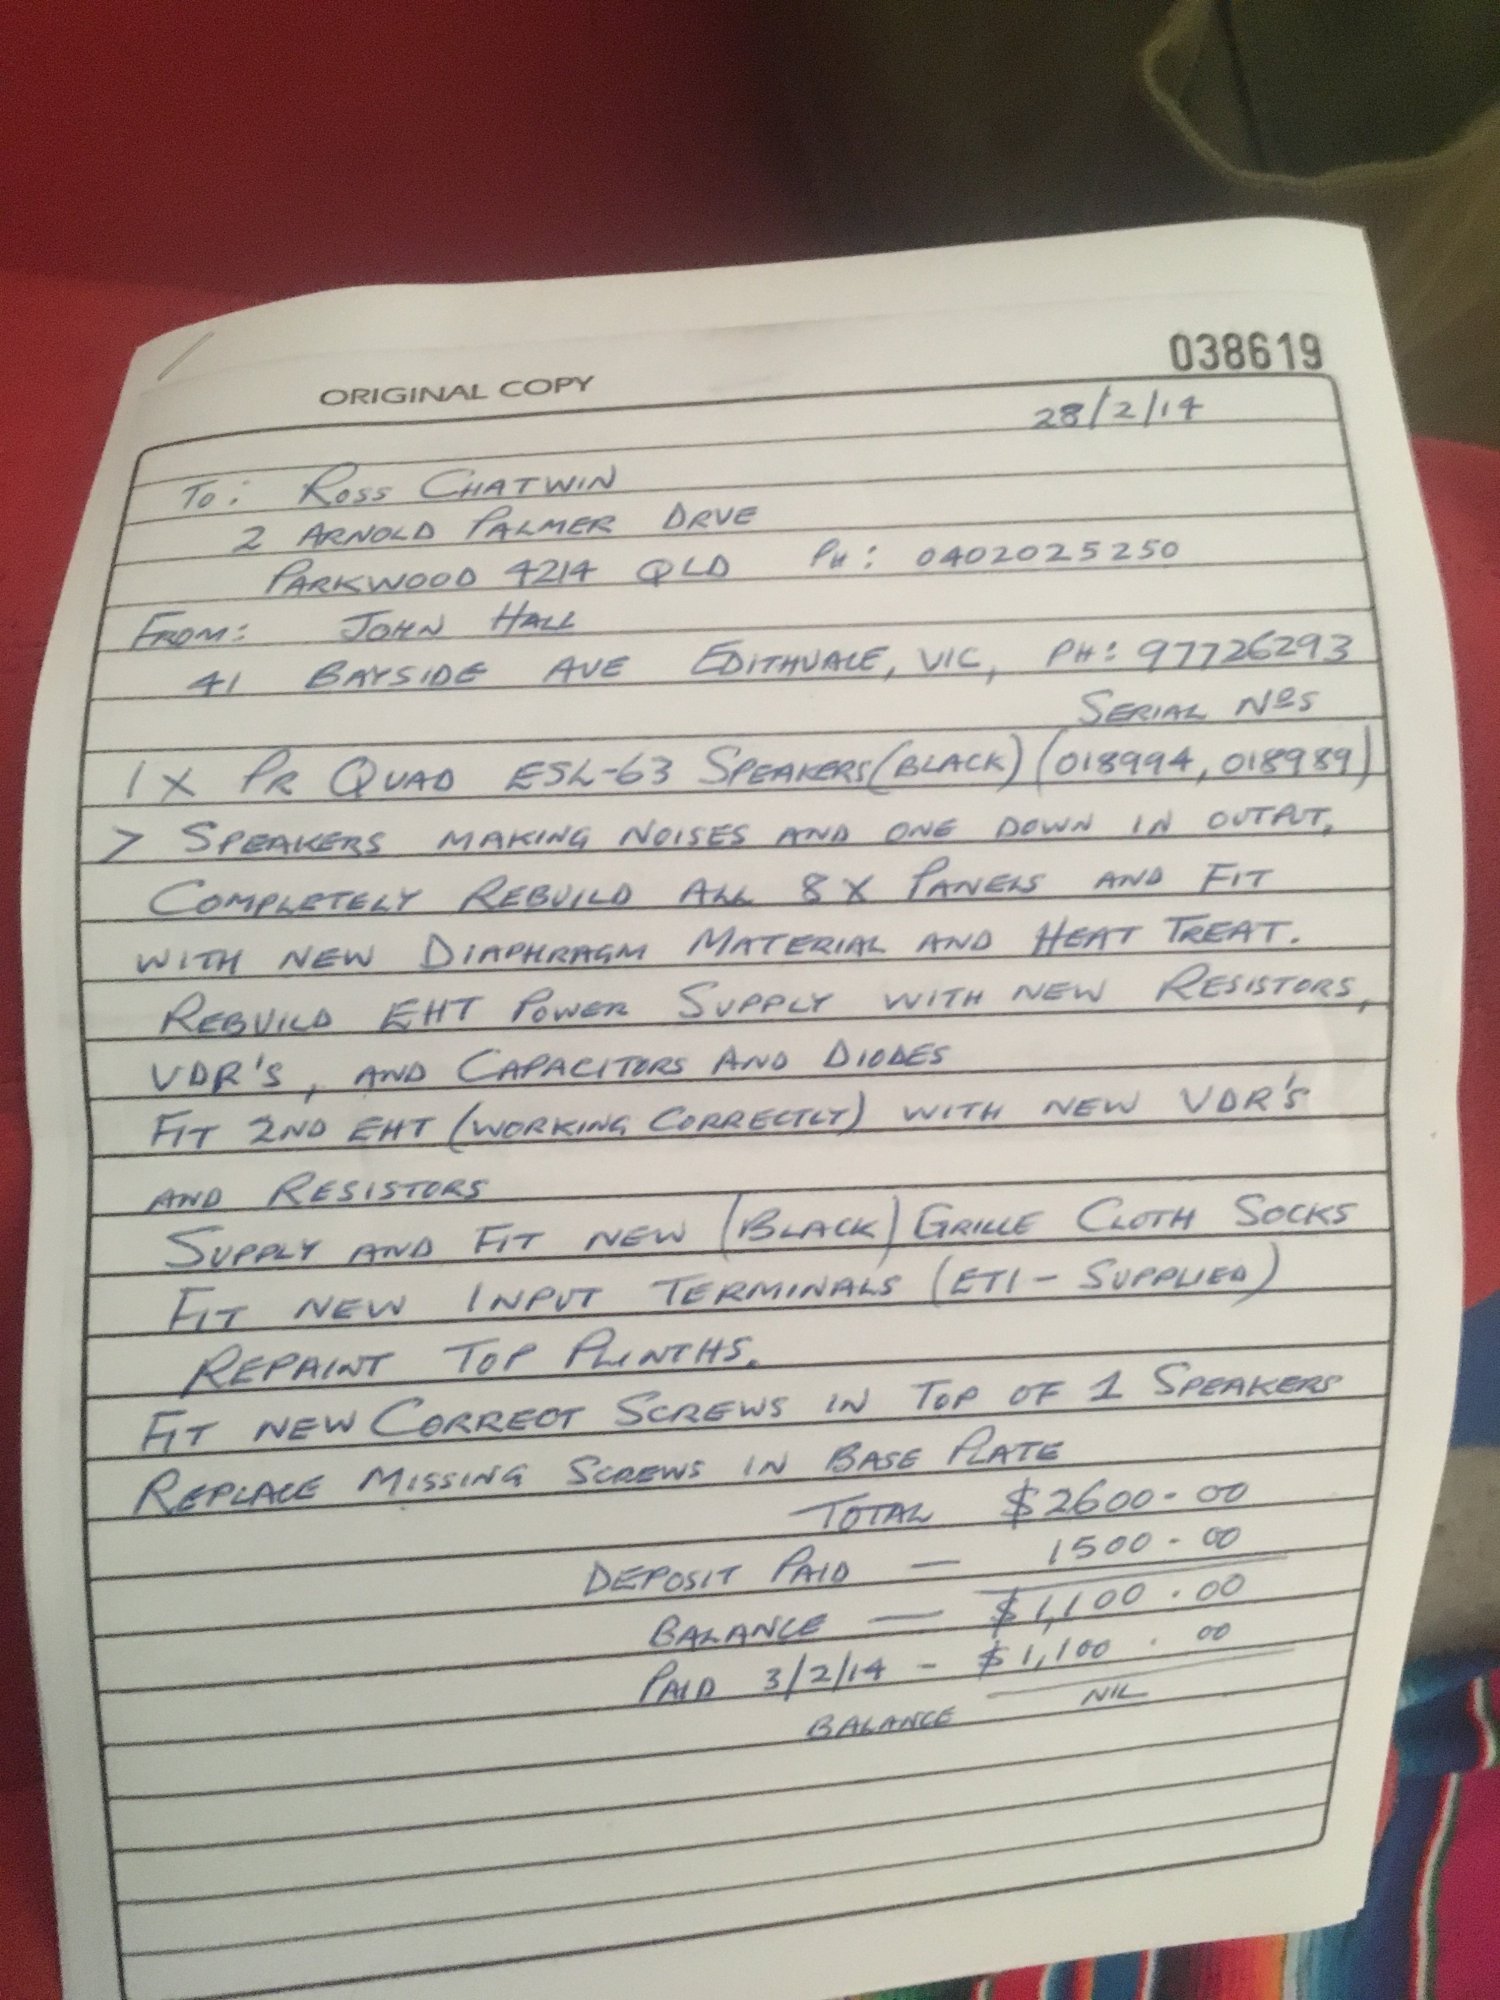 038619
ORIGINAL COPY
28/2/14
To: ROSS CHATWIN
2 ARNOLD PALMER DRVE
PARKWOOD 4214 QLD PH: 0402025250
FROM: JOHN HALL
41 BAYSIDE AVE EDITHVALE, VIC, PH: 97726293
SERIAL Nºs
1 X PR QUAD ESL-63 SPEAKERS (BLACK) (018994, 018989)
> SPEAKERS MAKING NOISES AND ONE DOWN IN OUTPUT,
COMPLETELY REBUILD ALL 8 X PANELS AND FIT
WITH NEW DIAPHRAGM MATERIAL AND HEAT TREAT.
REBUILD EHT POWER SUPPLY WITH NEW RESISTORS,
VDR'S, AND CAPACITORS AND DIODES
FIT 2ND EHT (WORKING CORRECTLY) WITH NEW VDR'S
AND RESISTORS
SUPPLY AND FIT NEW (BLACK) GRILLE CLOTH SOCKS
FIT NEW INPUT TERMINALS (ETI - SUPPLIED)
REPAINT TOP PLINTHS.
FIT NEW CORRECT SCREWS IN TOP OF 1 SPEAKERS
REPLACE MISSING SCREWS IN BASE PLATE
TOTAL $2600.00
DEPOSIT PAID — 1500.00
BALANCE — $1,100.00
PAID 3/2/14 - $1,100.00
BALANCE NIL